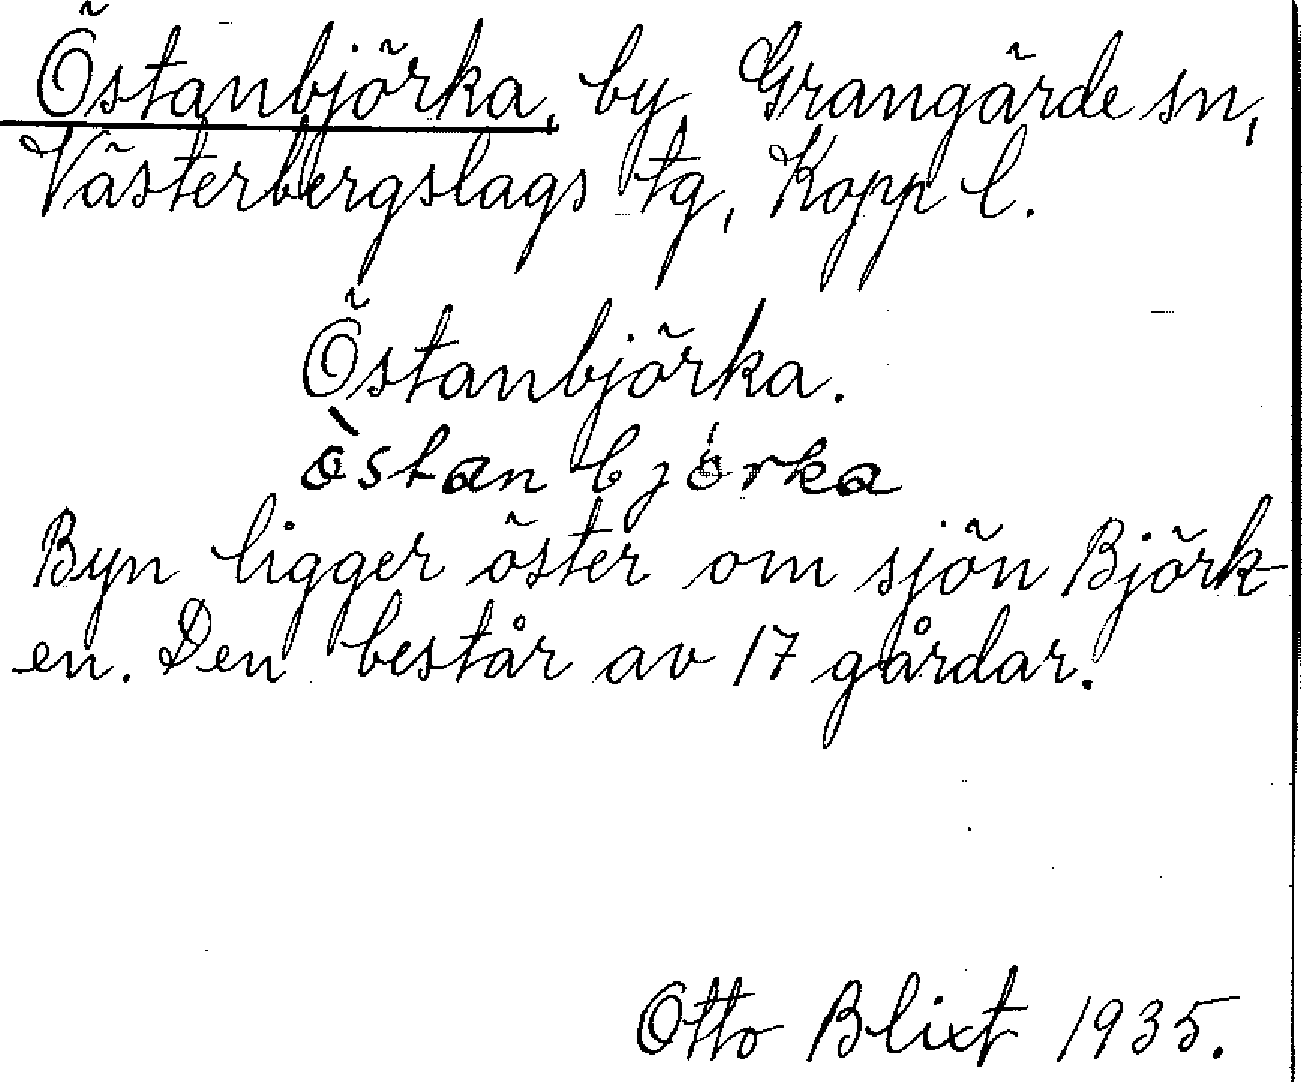 Östanbjörka, by, Grangärde sn,
Västerbergslags tg, Kopp l.
Östanbjörka.
òstan bjórka
Byn ligger öster om sjön Björk
en. Den består av 17 gårdar.
Otto Blixt 1935.